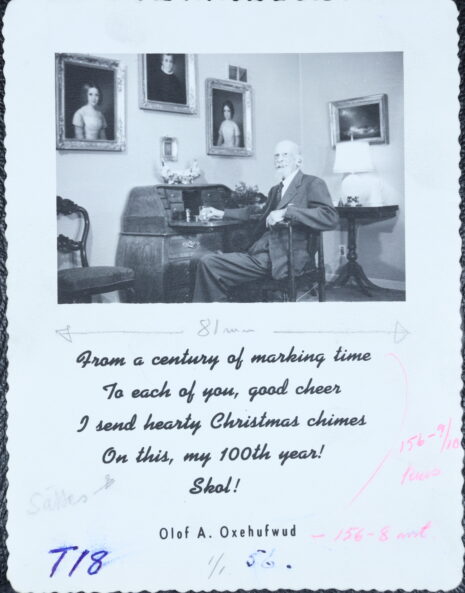 81 mm
From a century of marking time
To each of you, good cheer
I send hearty Christmas chimes
On this, my 100th year!
Skol!
156-9/10
Sättes
Olof A. Oxehufwud
156-8
T18
1/1 56.